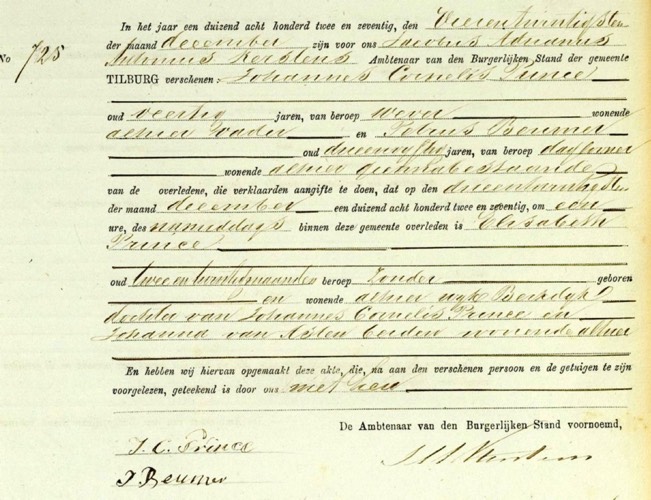 No 725
In het jaar een duizend acht honderd twee en zeventig, den Vierentwintigsten
der maand december zijn voor ons Jacobus Adrianus
Antonius Kerstens Ambtenaar van den Burgerlijken Stand der gemeente
TILBURG verschenen: Johannes Cornelis Prince
oud veertig jaren, van beroep wever wonende
alhier vader en Tobias Beumer
oud drieenvyftig jaren, van beroep daglooner
wonende alhier geen nabestaande
van de overledene, die verklaarden aangifte te doen, dat op den drieentwintigsten
der maand december een duizend acht honderd twee en zeventig, om een
ure, des namiddags binnen deze gemeente overleden is Elisabeth
Prince
oud twee en twintig maanden beroep Zonder geboren
en wonende alhier wyk Berkdyk
dochter van Johannes Cornelis Prince en
Johanna van Asten beiden wonende alhier
En hebben wij hiervan opgemaakt deze akte, die, na aan den verschenen persoon en de getuigen te zijn
voorgelezen, geteekend is door ons met hen
De Ambtenaar van den Burgerlijken Stand voornoemd,
J. C. Prince
J Beumer